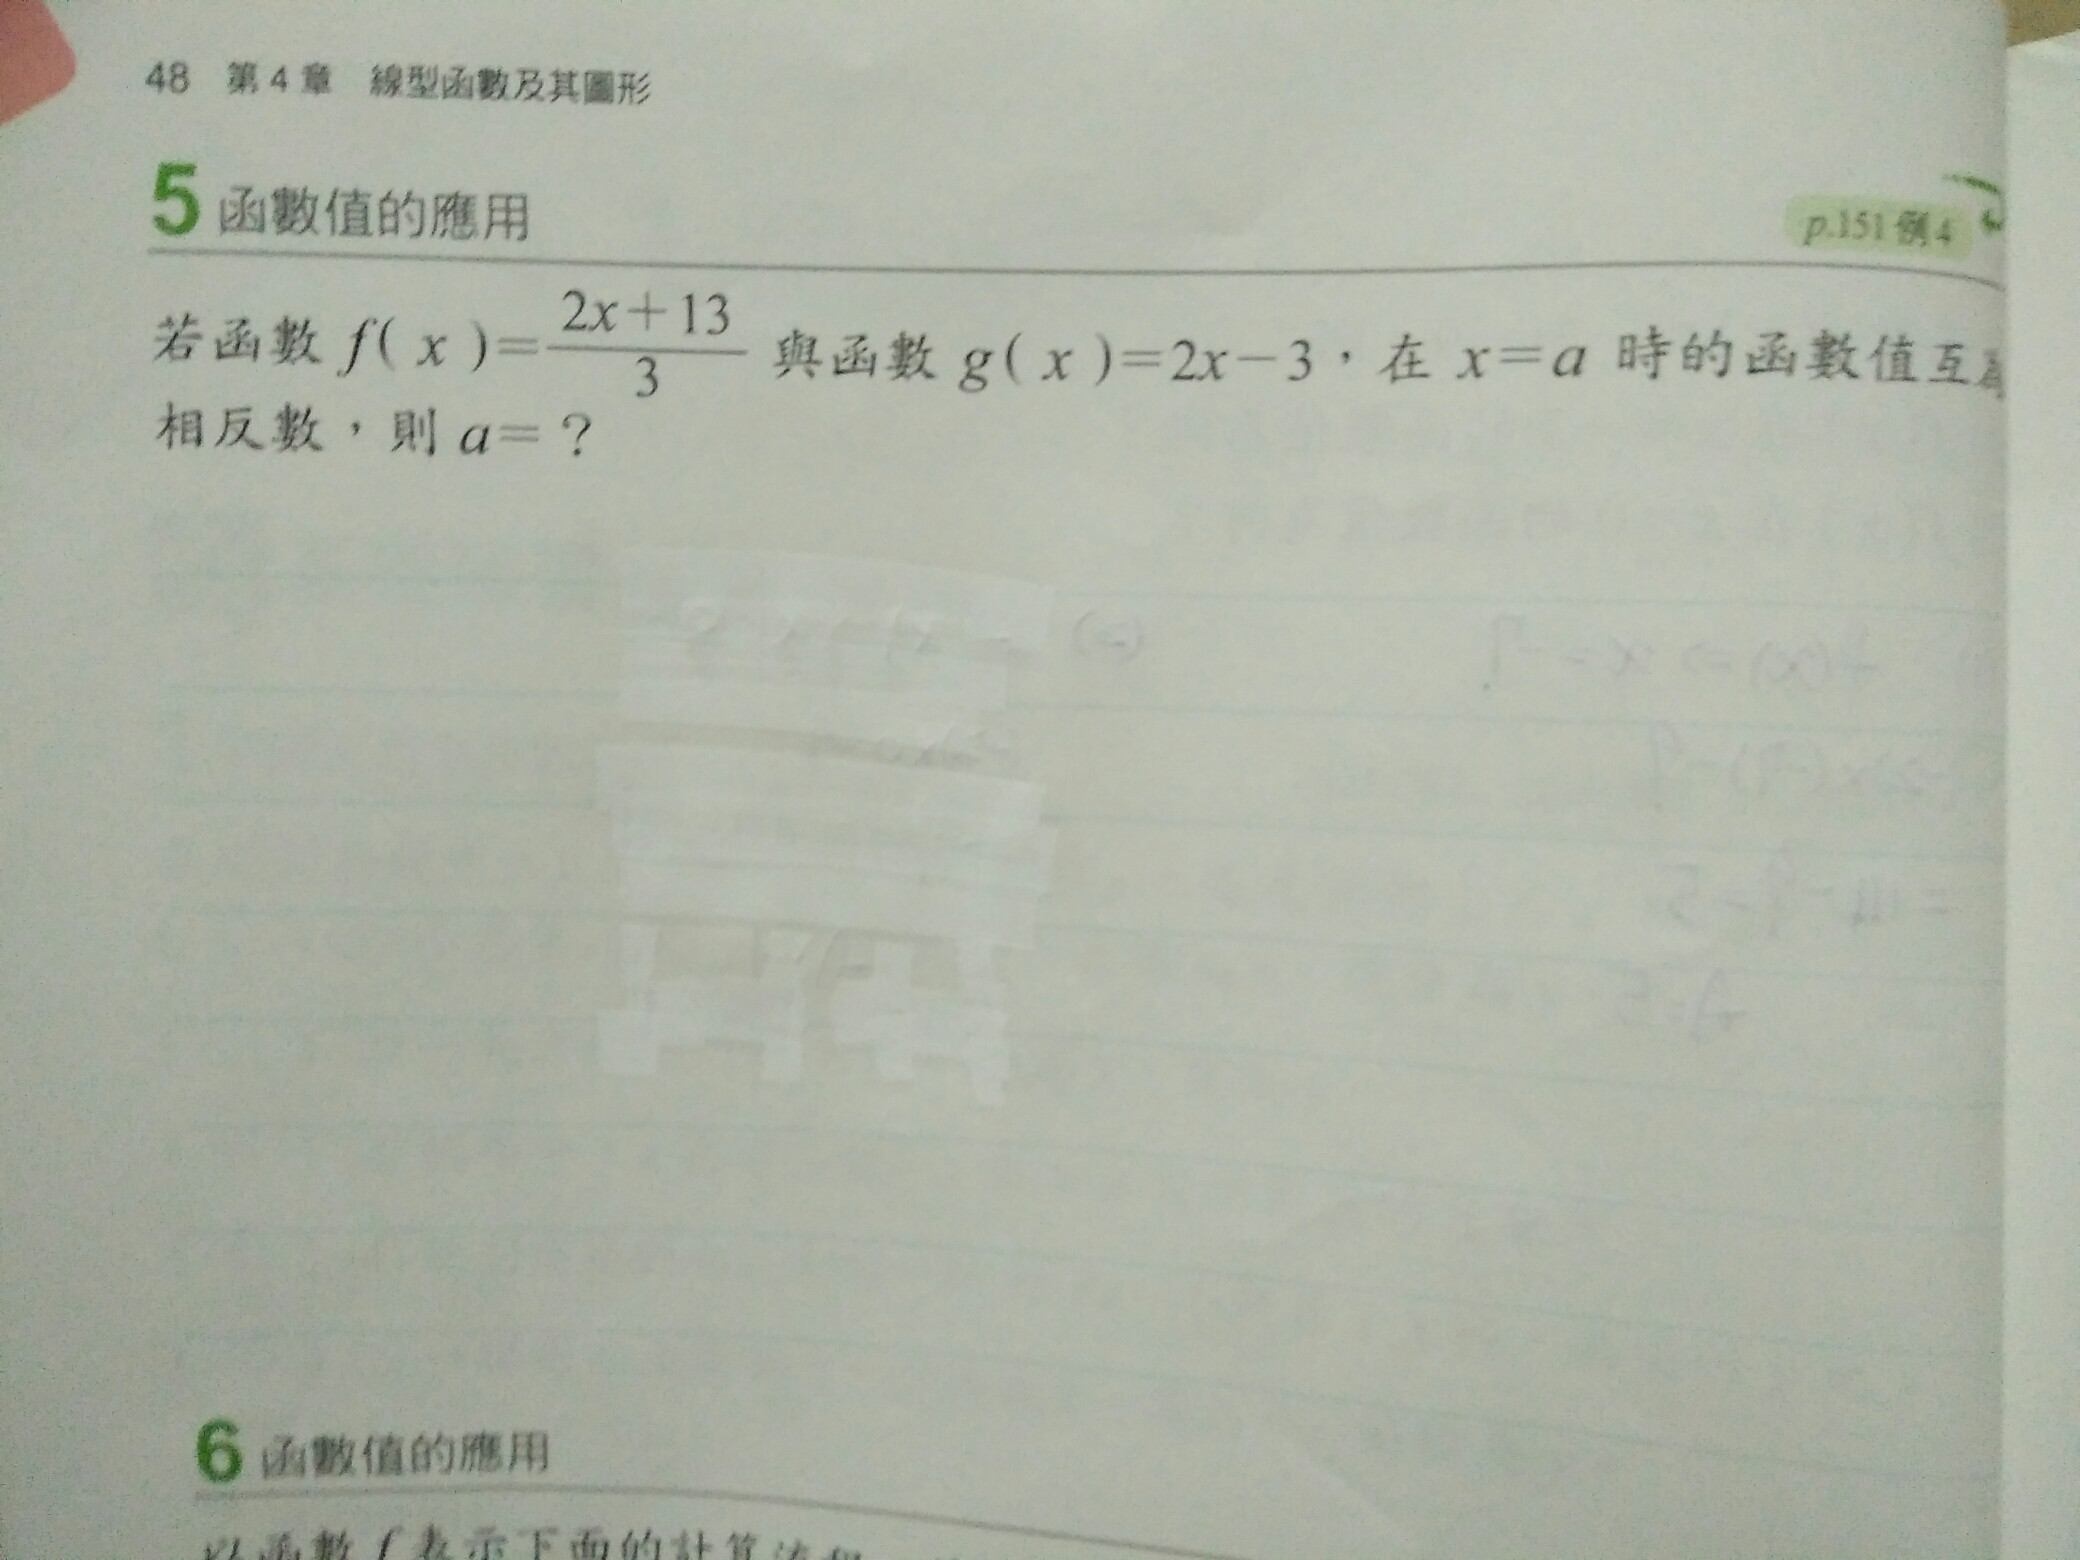 48 第4章 線型函數及其圖形
5 函數值的應用
p.151 例4
若函數 f( x )=\frac{2x+13}{3} 與函數 g( x )=2x-3,在 x=a 時的函數值互為
相反數,則 a=?
6 函數值的應用
以函數 f 表示下面的計算流程